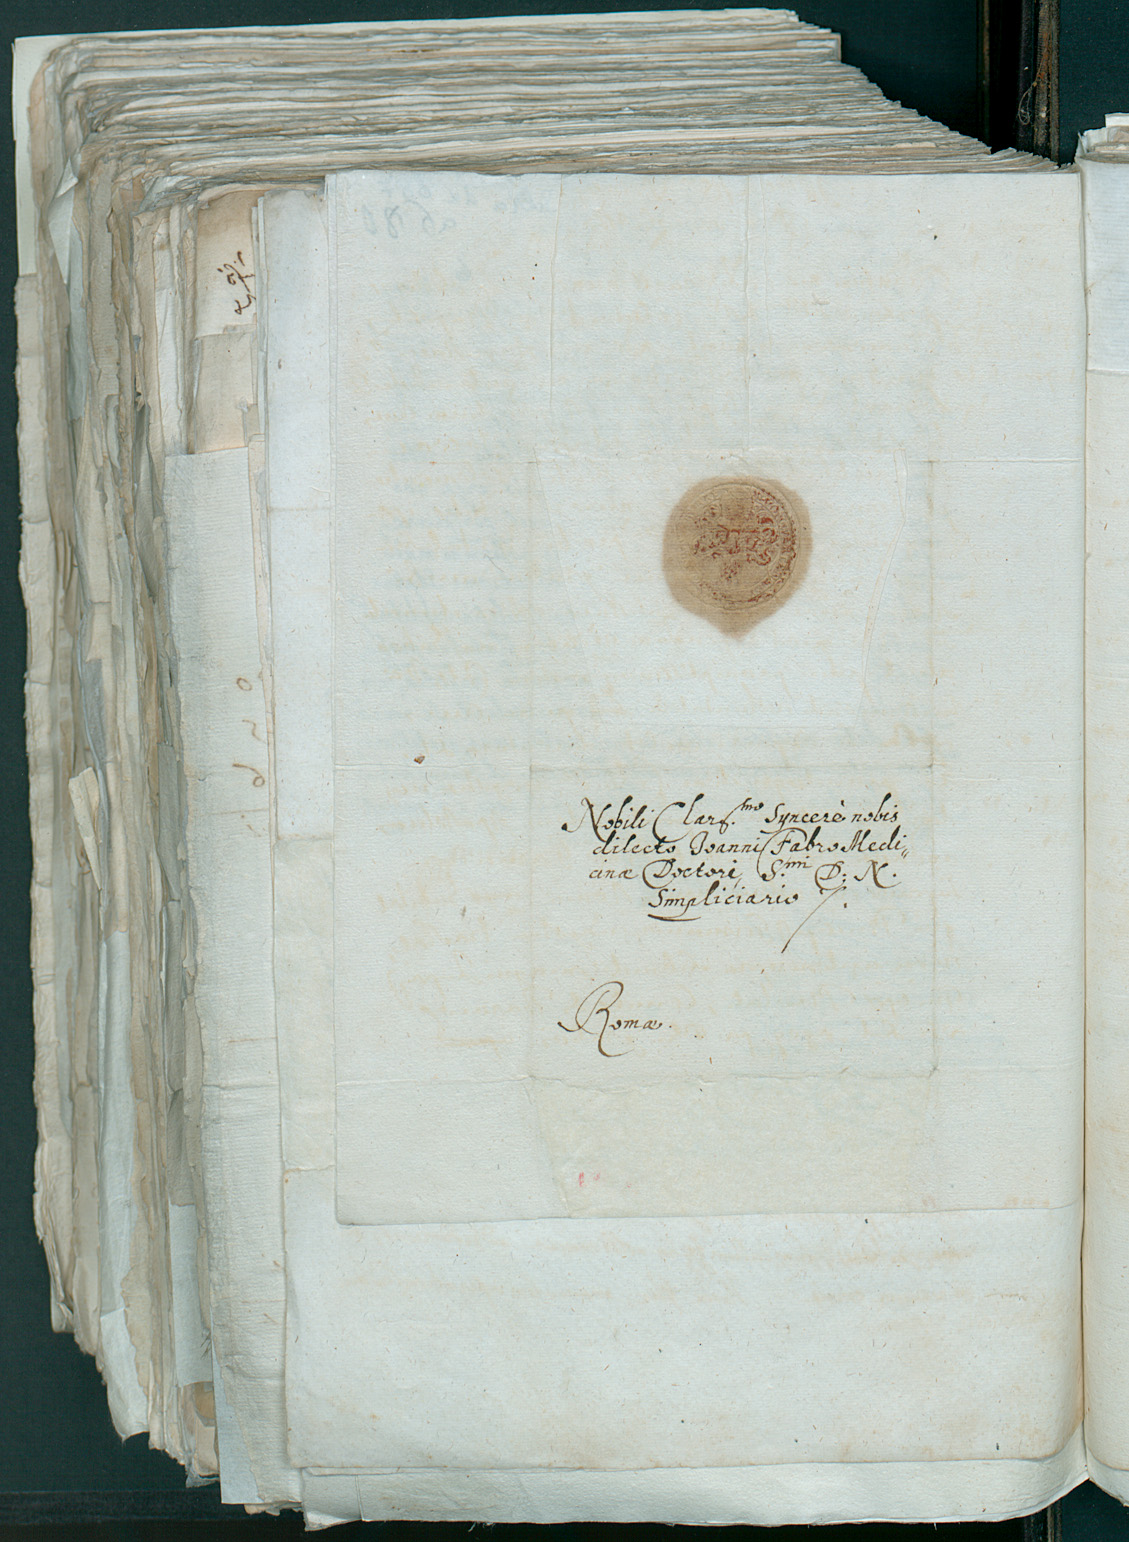 Nobili Clariss.mo Syncerè nobis
dilecto Joanni Fabro Medi„
cinæ Doctori, S.mi D: N.
Simpliciario /.
Romæ.